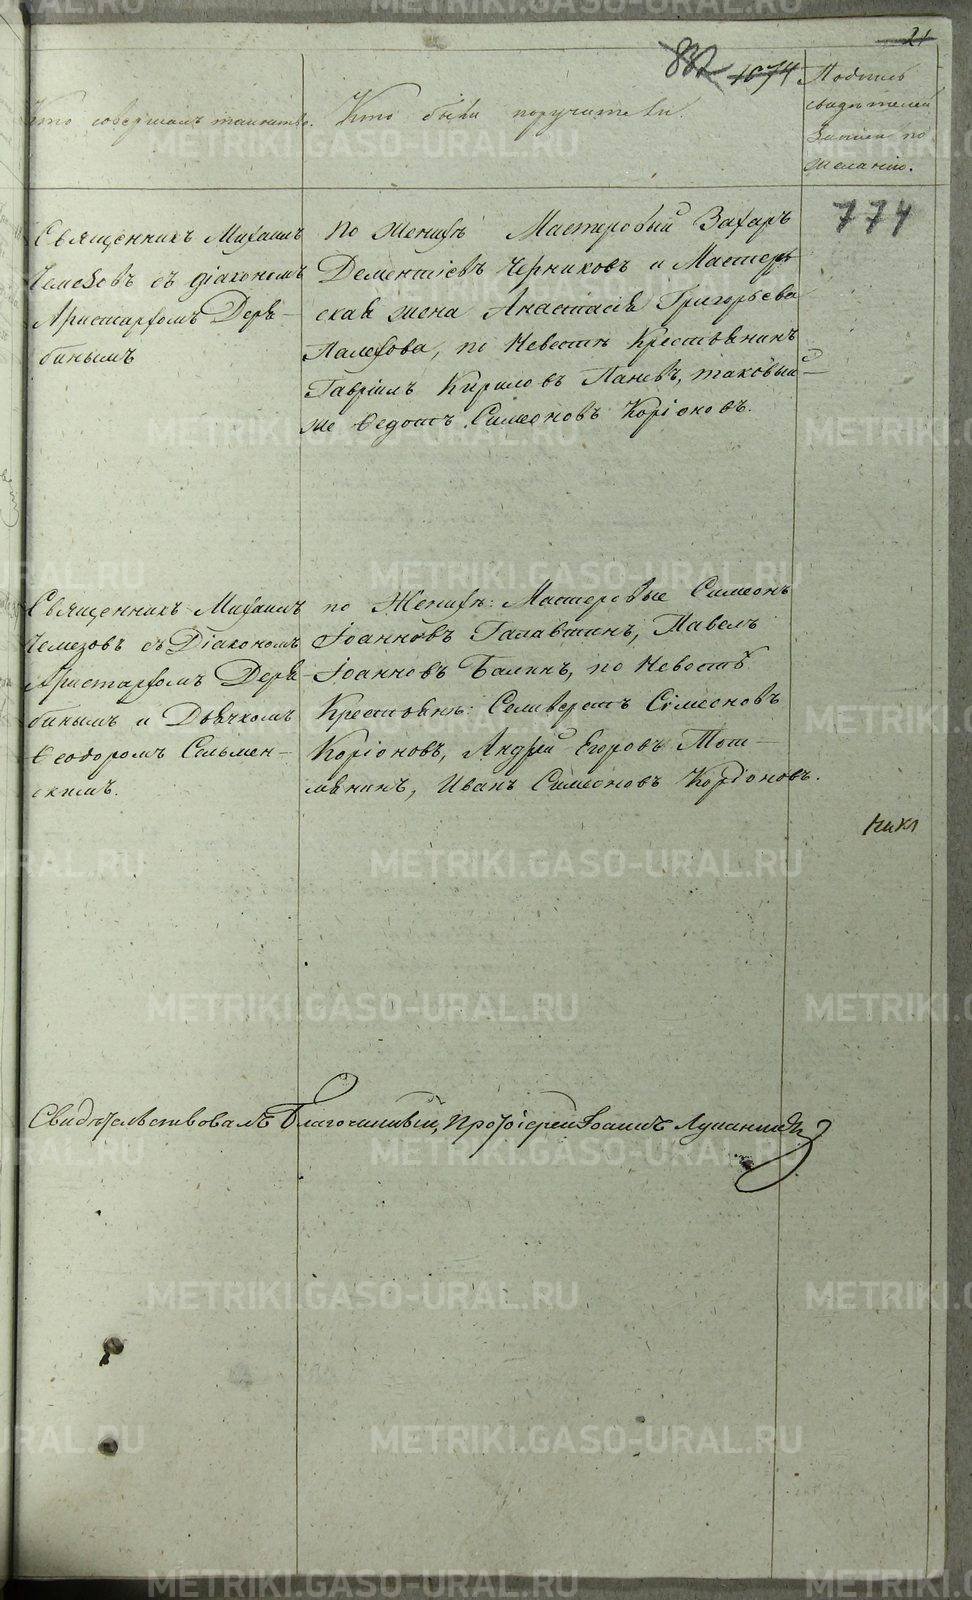 21
832 1074
Кто совершалъ таинство.
Кто были поручители.
Подпись
свидѣтелей
записи по
желанію.
774
Священникъ Михаилъ
Чемезовъ съ діакономъ
Аристархомъ Деря-
бинымъ
по женихѣ Мастеровый Захаръ
Дементіевъ Черниковъ и Мастер-
ская жена Анастасія Григорьева
Палехова, по Невестѣ Крестьянинъ
Гавріилъ Кириловъ Паневъ, таковый-
же Ѳедотъ Симеоновъ Коріоновъ.
Священникъ Михаилъ
Чемезовъ съ Діакономъ
Аристархомъ Деря-
бинымъ и Дьячкомъ
Ѳеодоромъ Сельмен-
скимъ.
по Женихѣ: Мастеровые Симеонъ
Іоанновъ Галавшинъ, Павелъ
Іоанновъ Балинъ, по Невестѣ
Крестьянѣ: Селиверстъ Сімеоновъ
Коріоновъ, Андрей Егоровъ Тот-
мянинъ, Иванъ Симеоновъ Коріоновъ.
Свидѣтельствовалъ Благочинный, Протоіерей Іоаннъ
METRIKI.GASO-URAL.RU